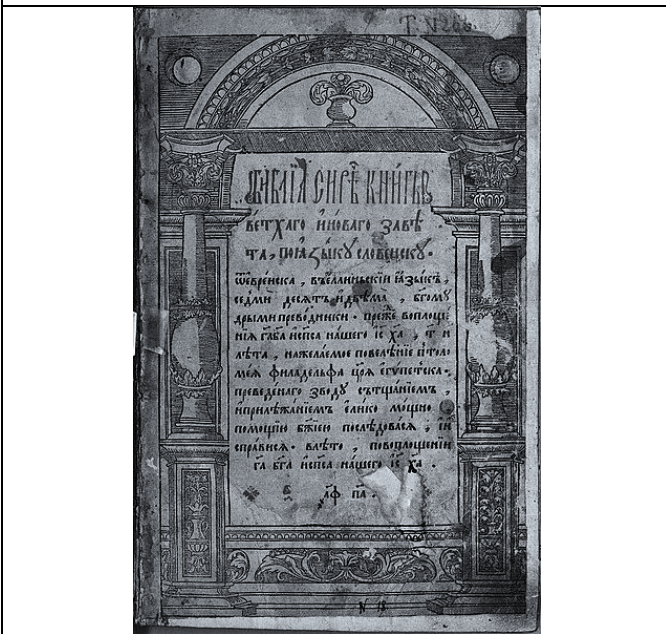 БИ́БЛІА СИРѢ́Ч КНИ́ГЫ
ВЕ́ТХАГО И҆ НО́ВАГО ЗАВѢ́
ТА, ПО ꙖЗЫ́КУ СЛОВЕНСКУ.
Ѿ ЕВРЕ́ЙСКА, ВЪ Е́ЛЛИНЬСКІЙ ꙖЗЫ́КЪ,
СЕ́ДМИ ДЕСЯТЪ И ДВѢМА, БГОМУ́
ДРЫМИ ПРЕВО́ДНИКИ. ПРЕ́ЖЕ ВОПЛОЩЕ́
НІЯ ГА҃ БА҃ И СП҃СА НА́ШЕГО І҆С ХА҃, Т҃ И
ЛѢТА, НА ЖЕЛАЕМОЕ ПОВЕЛѢ́НІЕ ПТОЛО
МЕ́Я ФИЛАДЕ́ЛЬФА ЦР҃Я ЕГУ́ПЕТСКА.
ПРЕВЕДЕ́НАГО ЗВО́ДУ СЪ ТЩА́НІЕМЪ,
И ПРИЛѢЖА́НІЕМЪ ЕЛИ́КО МО́ЩНО
ПО́МОЩІЮ БЖ҃ІЕЮ ПОСЛѢ́ДОВАСЯ, И И
СПРА́ВИСЯ. В ЛѢТО, ПО ВОПЛОЩЕ́НІИ
ГА҃ БГ҃А И СП҃СА НА́ШЕГО І҆С ХА҃.
҂АФ ПА.
N 18